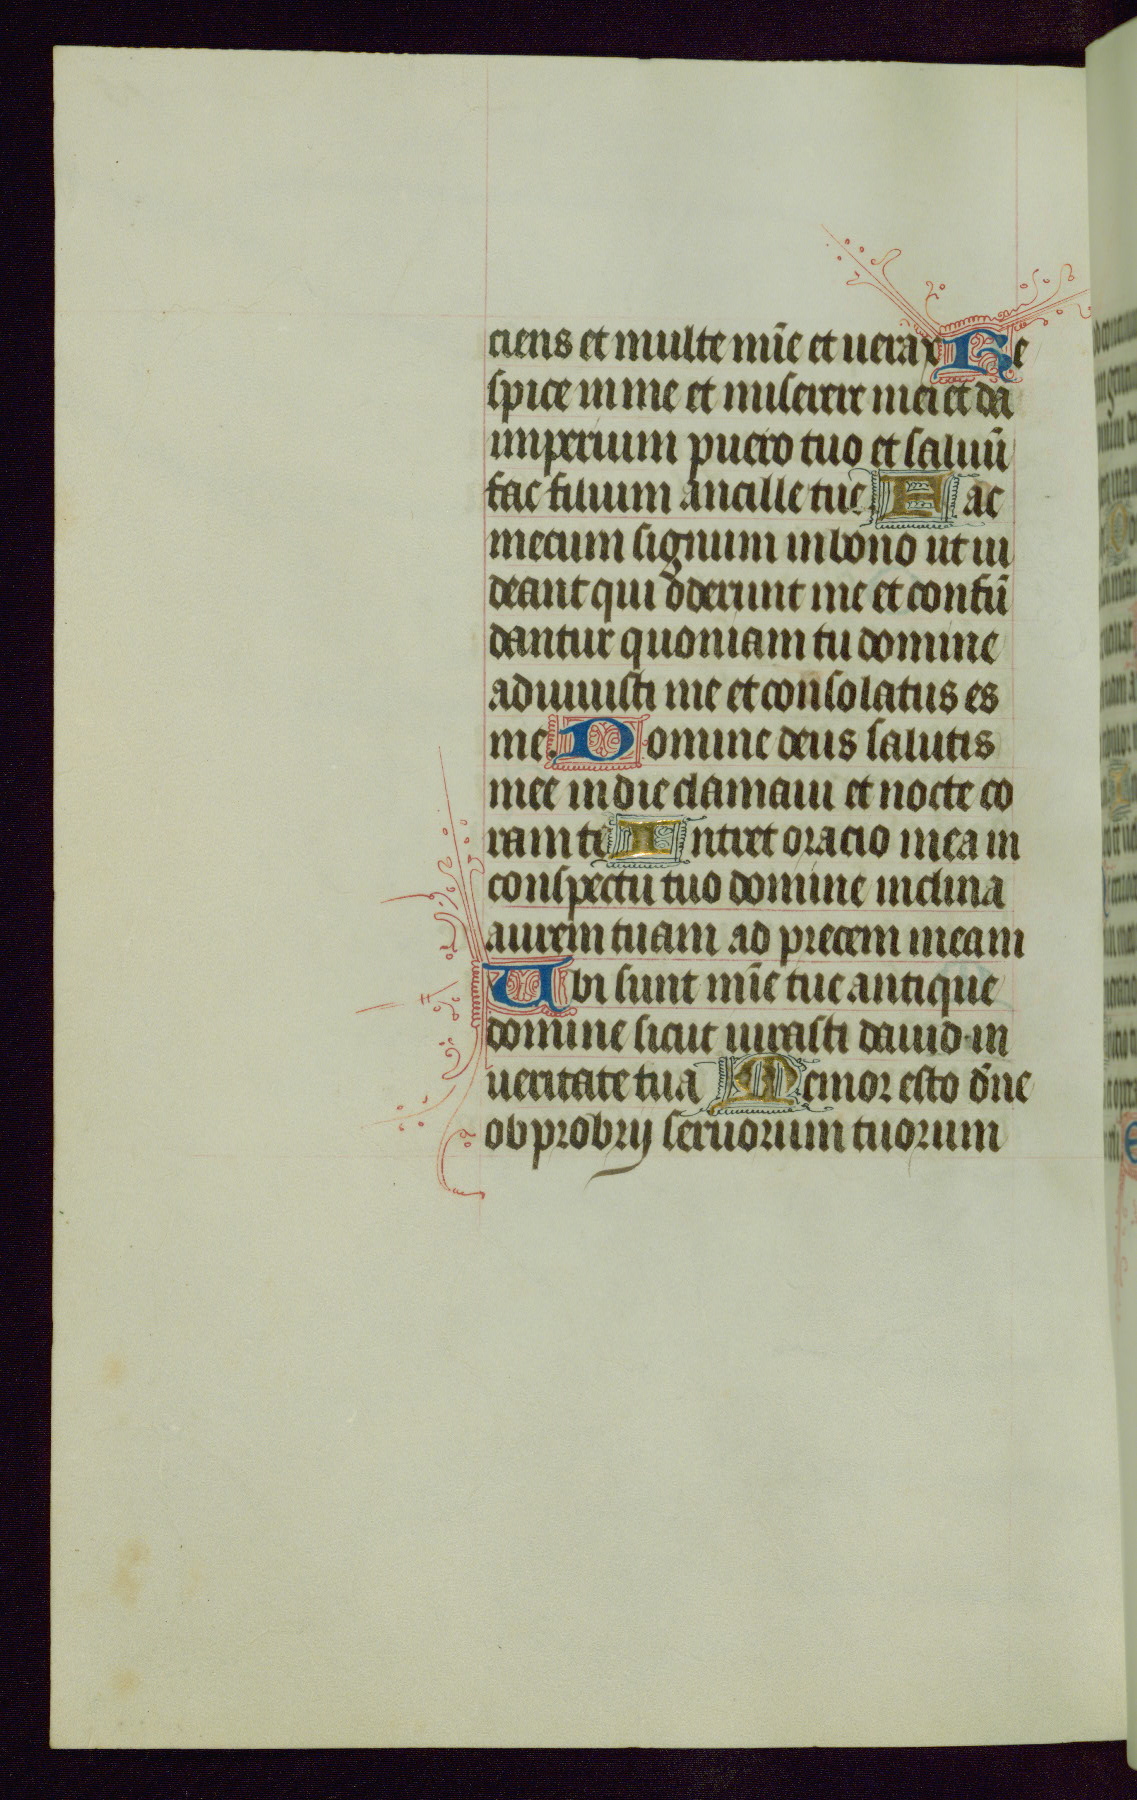 ciens et multe mīe et uerax Re
spice in me et miserere mei et da
imperium puero tuo et saluū
fac filium ancille tue Fac
mecum signum in bono ut ui
deant qui oderunt me et confū
dantur quoniam tu domine
adiuuisti me et consolatus es
me. Domine deus salutis
mee in die clamaui et nocte co
ram te Intret oracio mea in
conspectu tuo domine inclina
aurem tuam ad precem meam
Ubi sunt mīe tue antique
domine sicut iurasti dauid in
ueritate tua Memor esto dn̄e
obprobrij seruorum tuorum